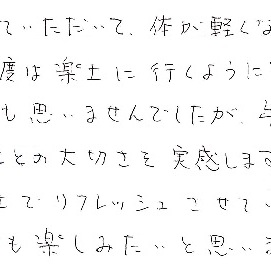 ていただいて、体が軽くな
度は楽土に行くように
も思いませんでしたが、
ことの大切さを実感します
でリフレッシュさせてい
も楽しみたいと思いま